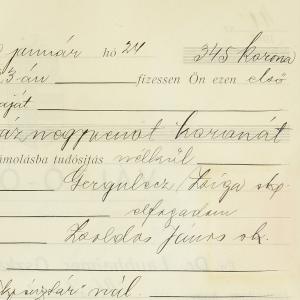 január hó 24 345 korona
3-án fizessen Ön ezen első
aját
áznegyvenöt koronát
ámolásba tudósitás nélkül
Gergulecz
elfogadom
Zsoldos János sk.
nál.